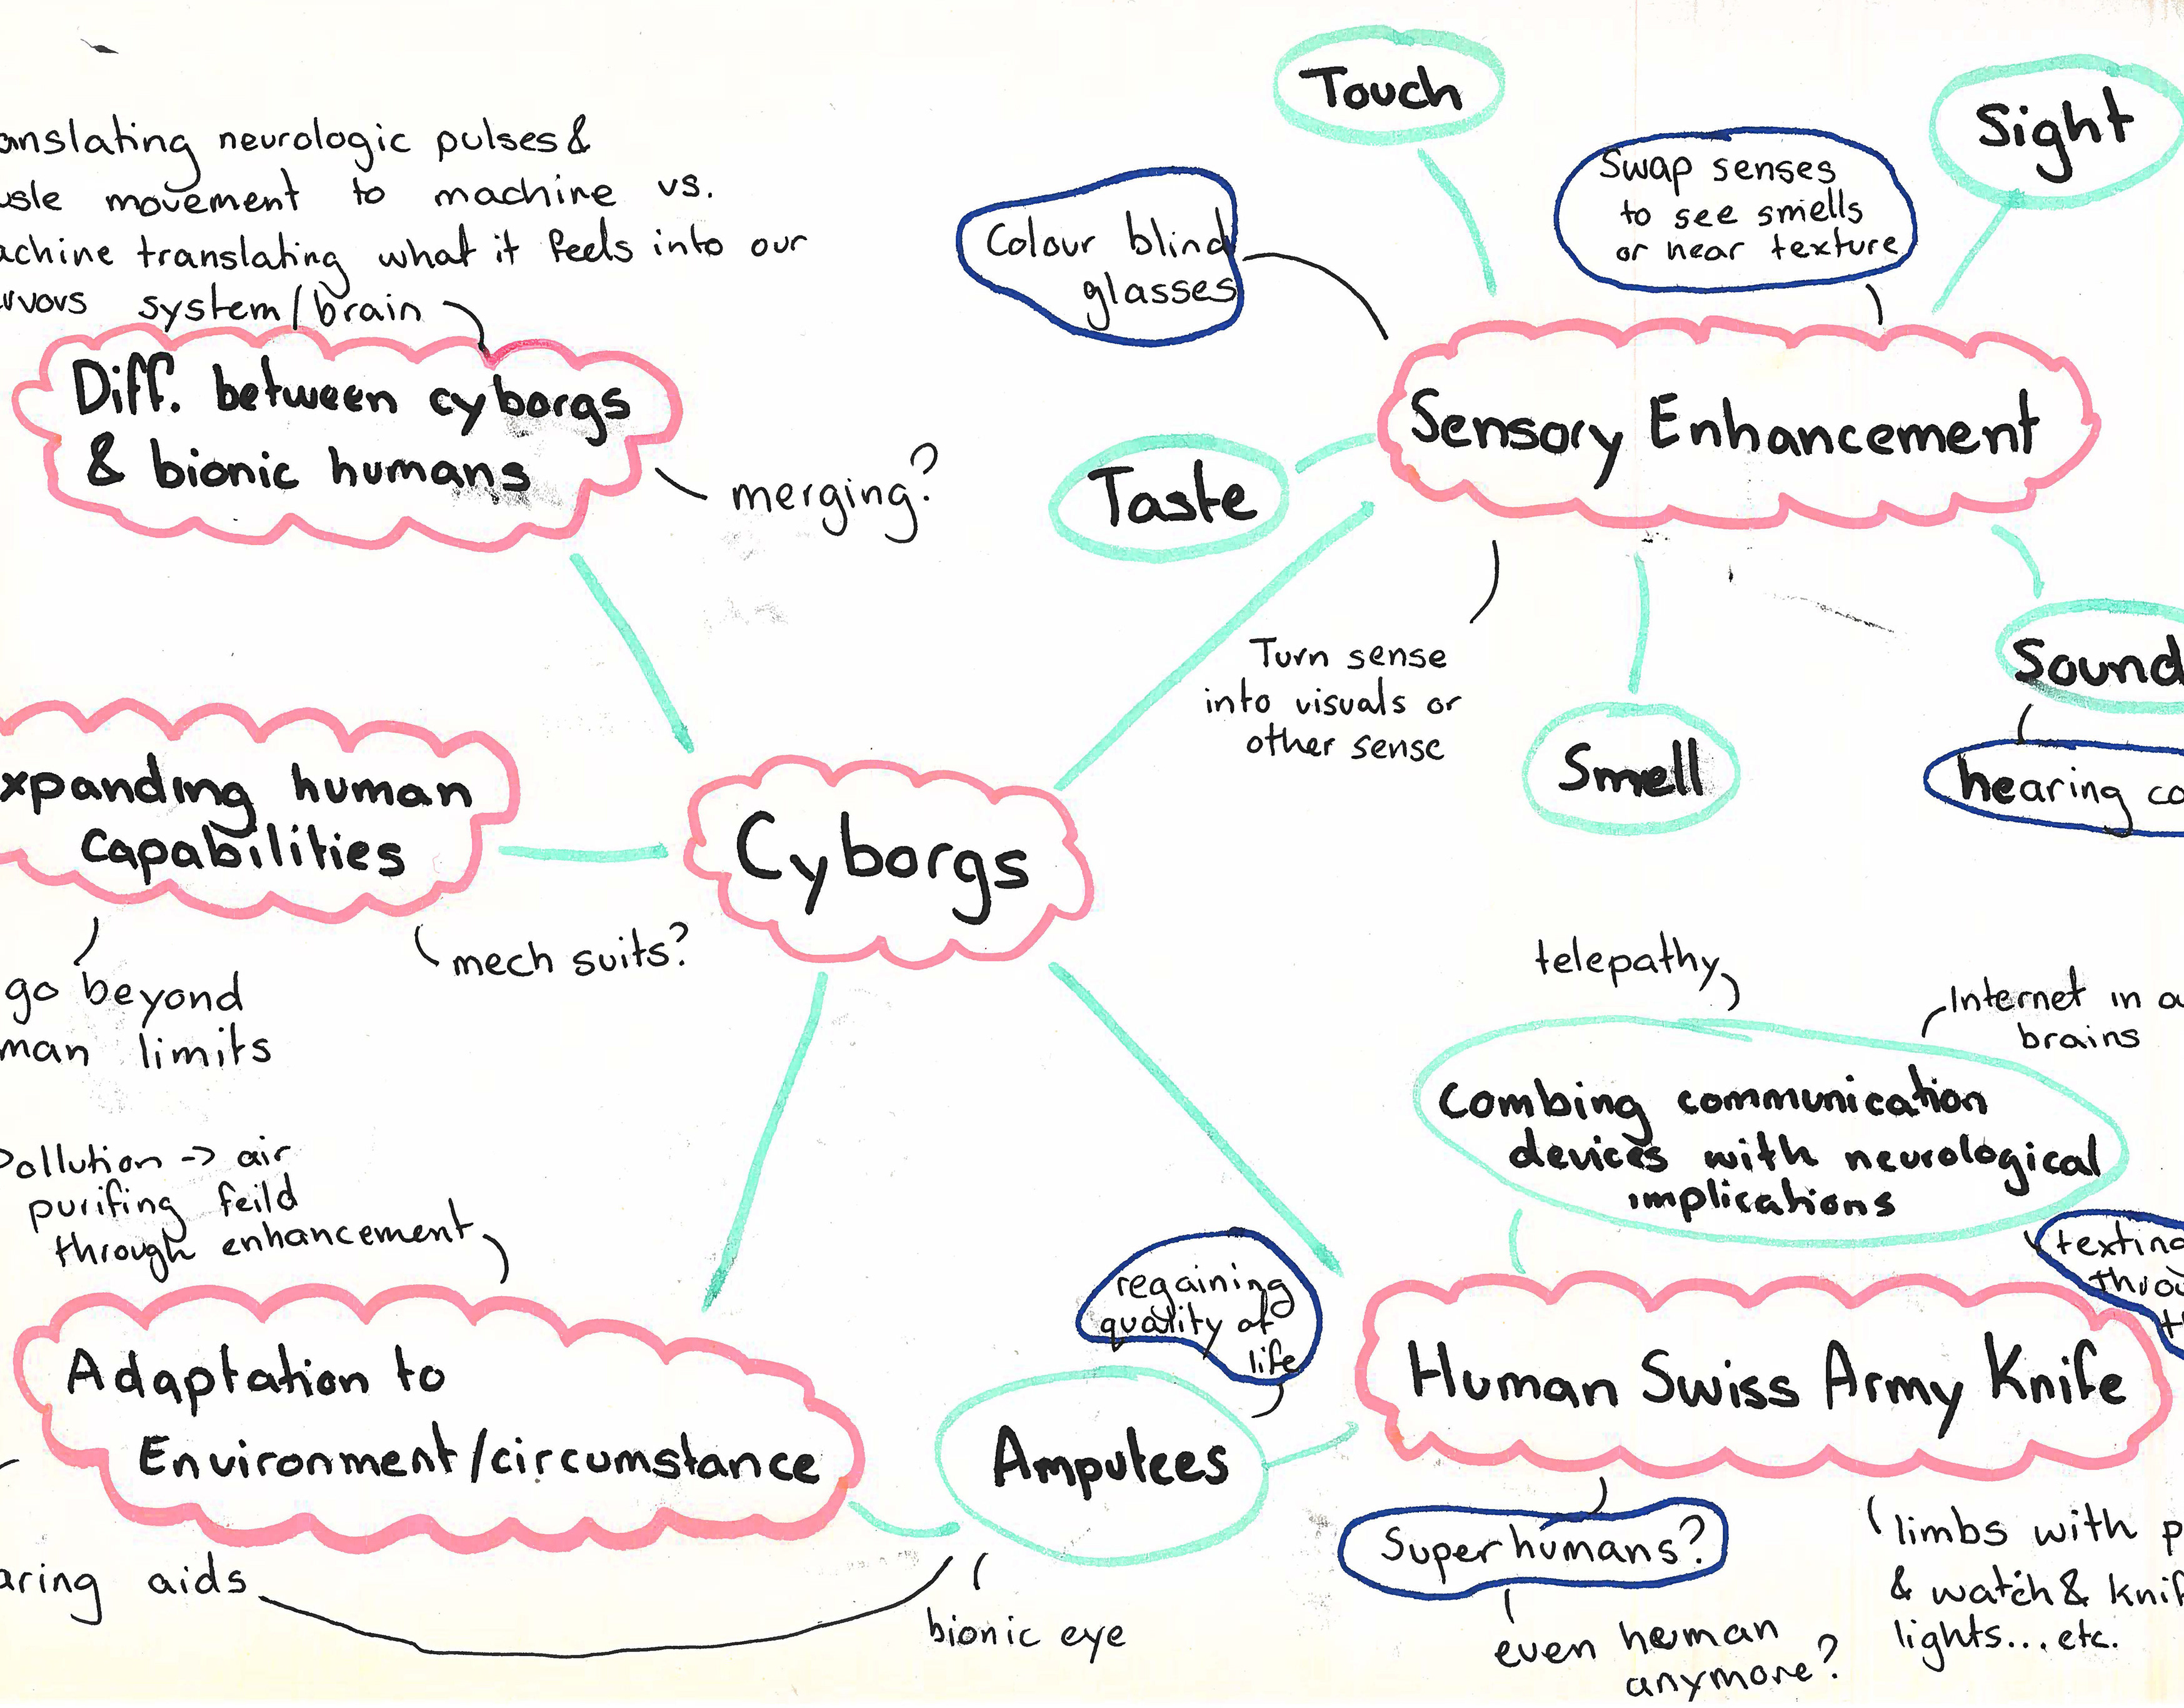 Touch
Sight
anslating neurologic pulses &
usle movement to machine vs.
achine translating what it feels into our
rvous system/brain
Colour blind
glasses
Swap senses
to see smells
or hear texture
Diff. between cyborgs
& bionic humans
merging?
Sensory Enhancement
Taste
Turn sense
into visuals or
other sense
Smell
Sound
hearing co
xpanding human
Capabilities
Cyborgs
mech suits?
go beyond
man limits
telepathy
Internet in
brains
Combing communication
devices with neurological
implications
Pollution -> air
purifing feild
through enhancement
texting
throu
regaining
quality of
life
Adaptation to
Environment/circumstance
Amputees
Human Swiss Army Knife
aring aids
bionic eye
Superhumans?
even human
anymore?
limbs with p
& watch & knif
lights...etc.